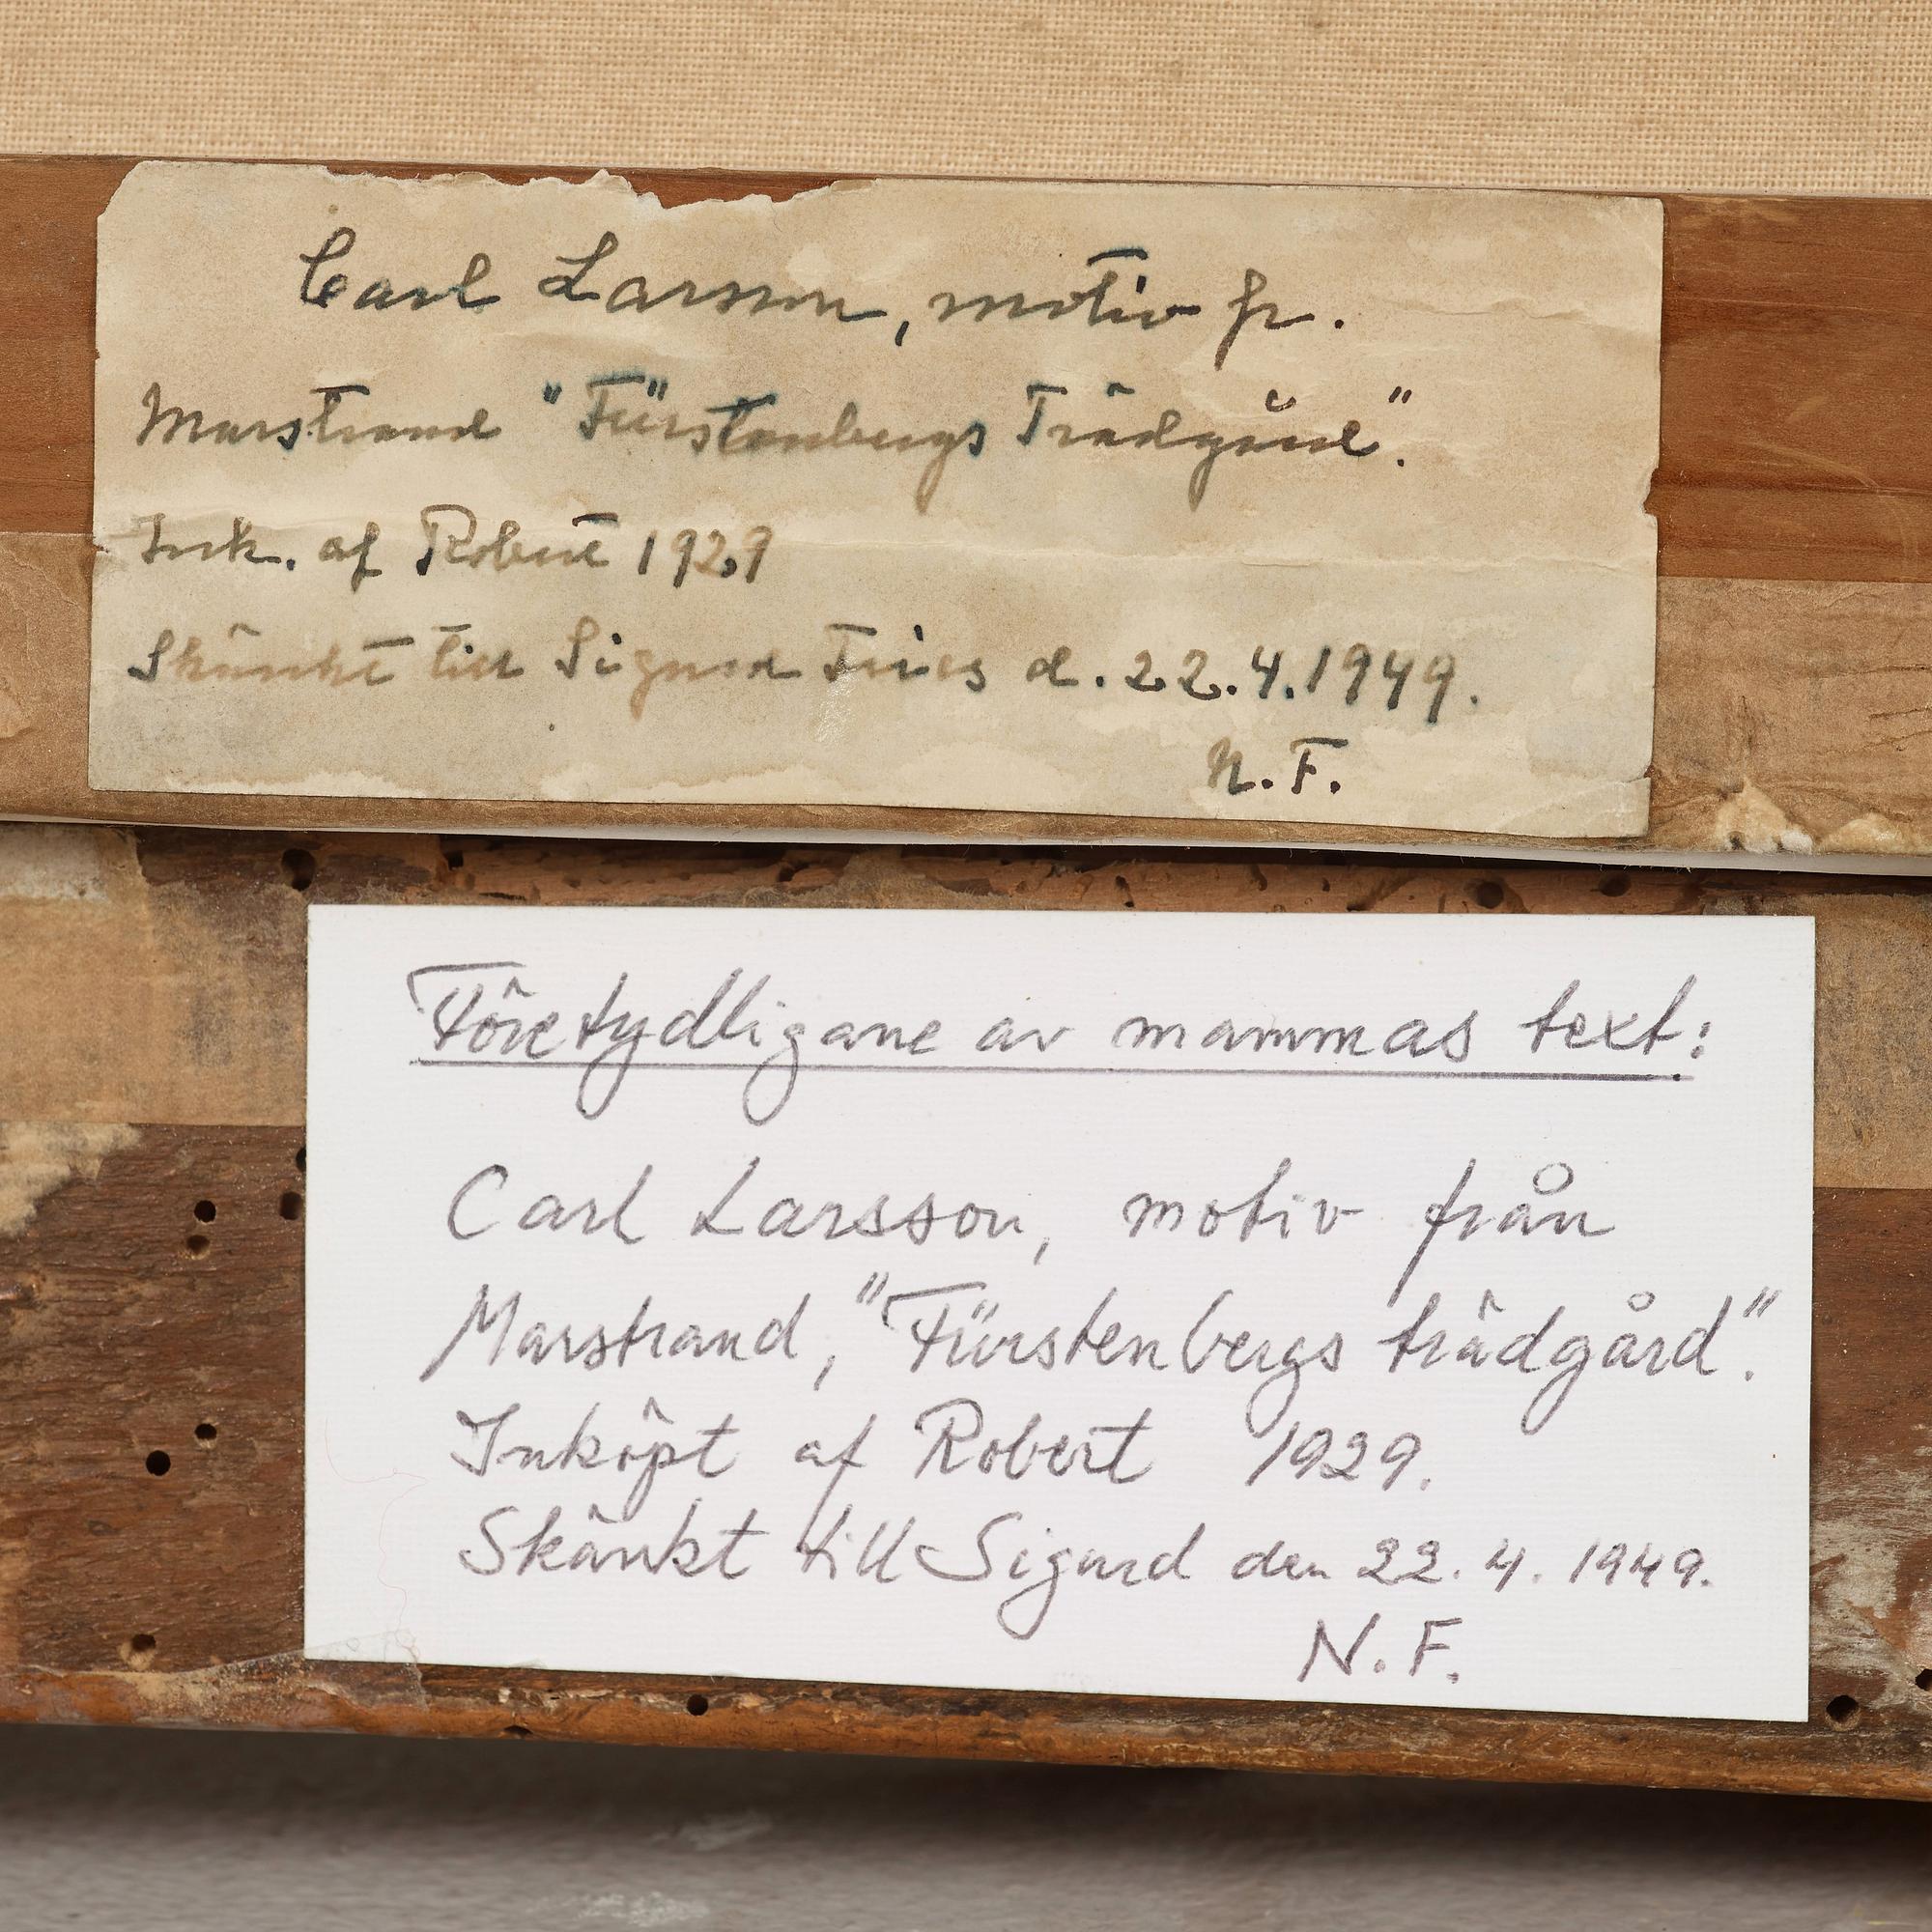 Carl Larsson, motiv fr.
Marstrand "Fürstenbergs Trädgård".
Ink. af Robert 1929
Skänkt till Sigurd Fries d. 22.4.1949.
N.F.
Företydligane av mammas text:
Carl Larsson, motiv från
Marstrand, "Fürstenbergs trädgård".
Inköpt af Robert 1929.
Skänkt till Sigurd den 22.4.1949.
N.F.